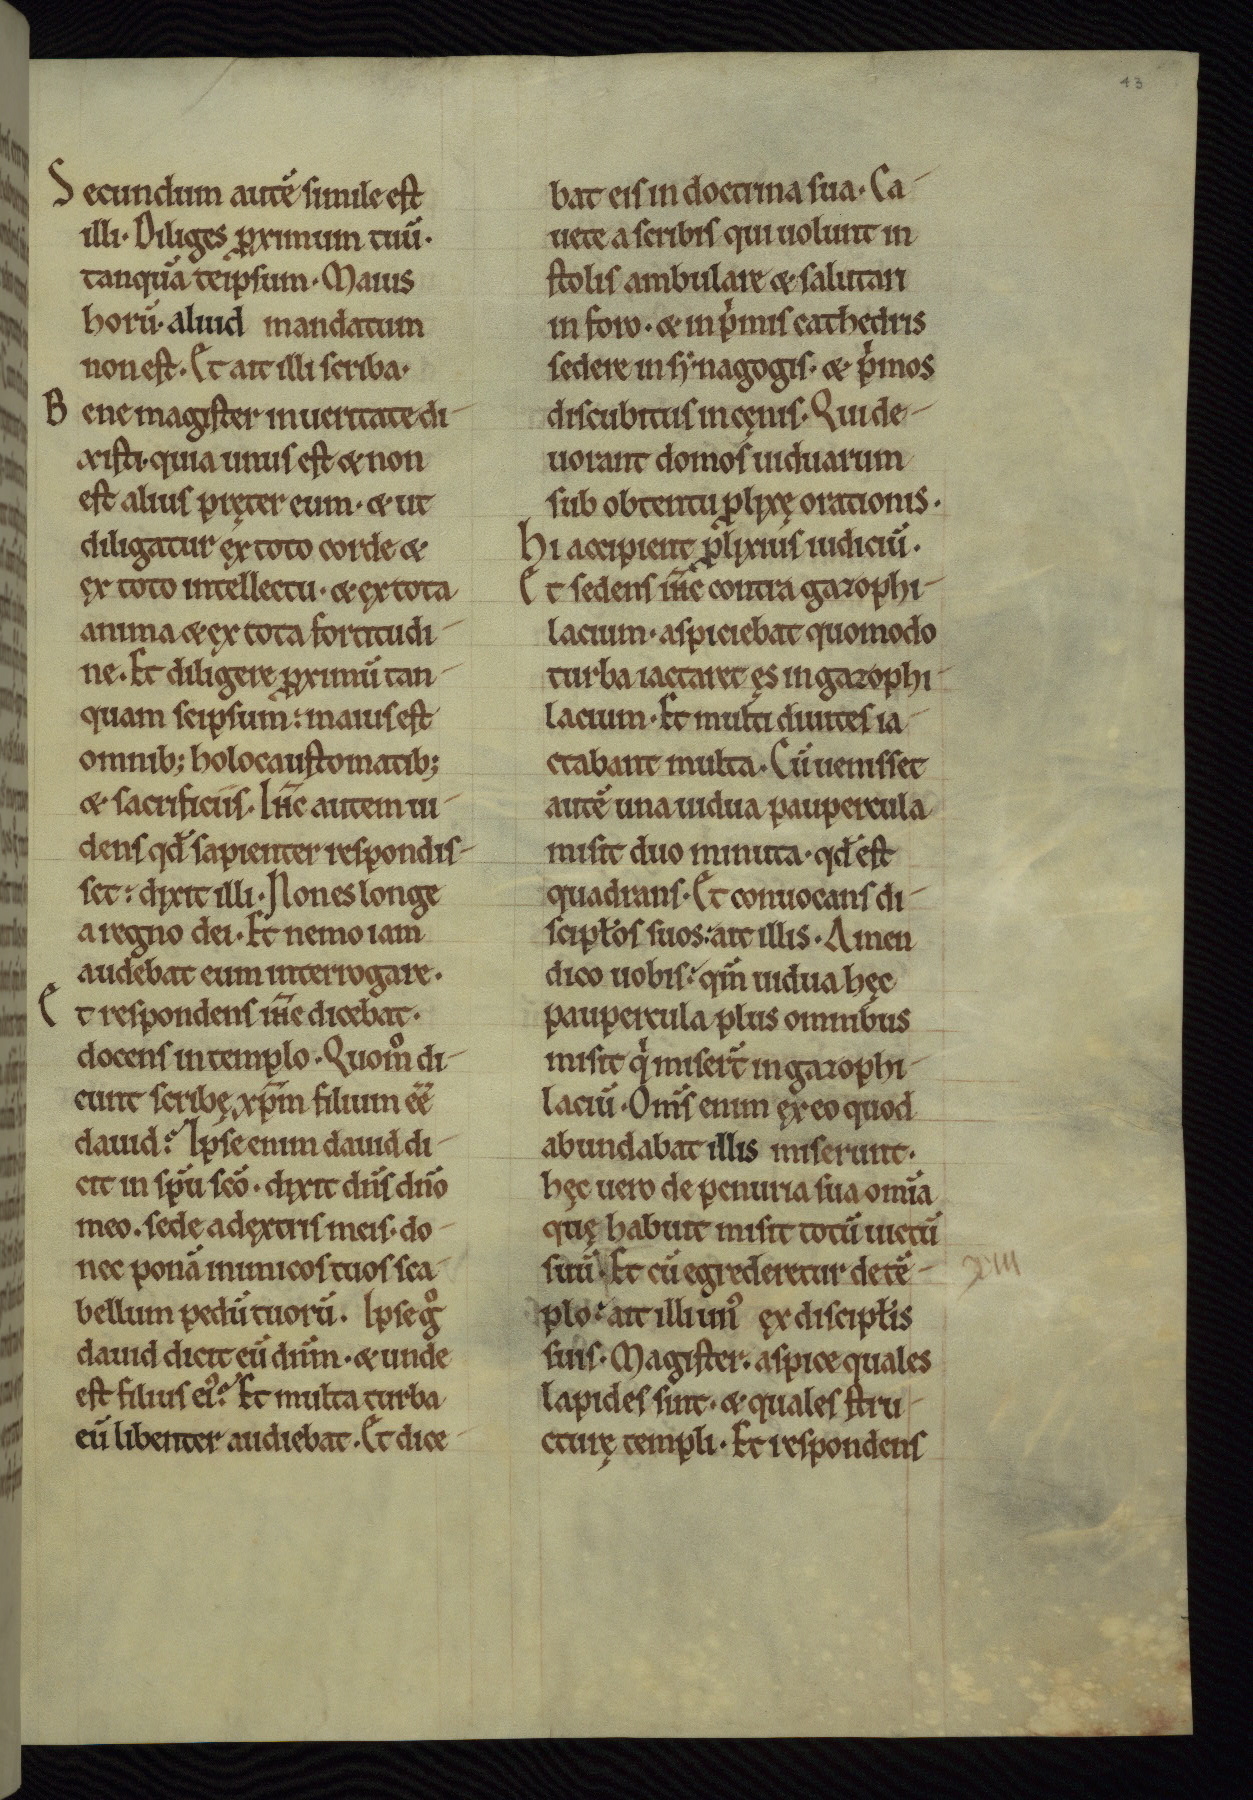 43
Secundum autē simile est
illi· Diliges ꝓximum tuū·
tanquā teipsum· Maius
horū· aliud mandatum
non est· Et ait illi scriba·
Bene magister in ueritate di-
xisti· quia unus est & non
est alius pręter eum· & ut
diligatur ex toto corde &
ex toto intellectu· & ex tota
anima & ex tota fortitudi-
ne· Et diligere ꝓximū tan-
quam seipsum: maius est
omnib; holocaustomatib;
& sacrificiis· Ihc̄ autem ui-
dens qđ sapienter respondis-
set: dixit illi· Non es longe
a regno dei· Et nemo iam
audebat eum interrogare·
Et respondens ihc̄ dicebat·
docens in templo· Quom̊ di-
cunt scribę xp̄m filium eē
dauid? Ipse enim dauid di-
cit in sp̄u sc̄o· dixit dn̄s dn̄o
meo· sede a dextris meis· do-
nec ponā inimicos tuos sca-
bellum pedū tuorū· Ipse gͦ
dauid dicit eū dn̄m· & unde
est filius ei᾽? Et multa turba
eū libenter audiebat· Et dice-
bat eis in doctrina sua· Ca-
uete a scribis qui uolunt in
stolis ambulare & salutari
in foro· & in pͥmis cathedris
sedere in synagogis· & pͥmos
discubitus in cęnis· Qui de-
uorant domos uiduarum
sub obtentu ꝓlixę orationis·
Hi accipient ꝓlixius iudiciū·
Et sedens ihc̄ contra gazophi-
lacium· aspiciebat quomodo
turba iactaret ęs in gazophi-
lacium· Et multi diuites ia-
ctabant multa· Cū uenisset
autē una uidua paupercula
misit duo minuta· qđ est
quadrans· Et conuocans di-
scipłos suos: ait illis· Amen
dico uobis: qm̄ uidua hęc
paupercula plus omnibus
misit qͥ miser̄t in gazophi-
laciū· Om̄s enim ex eo quod
abundabat illis miserunt·
hęc uero de penuria sua om̄ia
quę habuit misit totū uictū
suū· Et cū egrederetur de tē-
plo: ait illi un᾽ ex discipłis
suis· Magister· aspice quales
lapides sint· & quales stru-
cturę templi· Et respondens
xiii